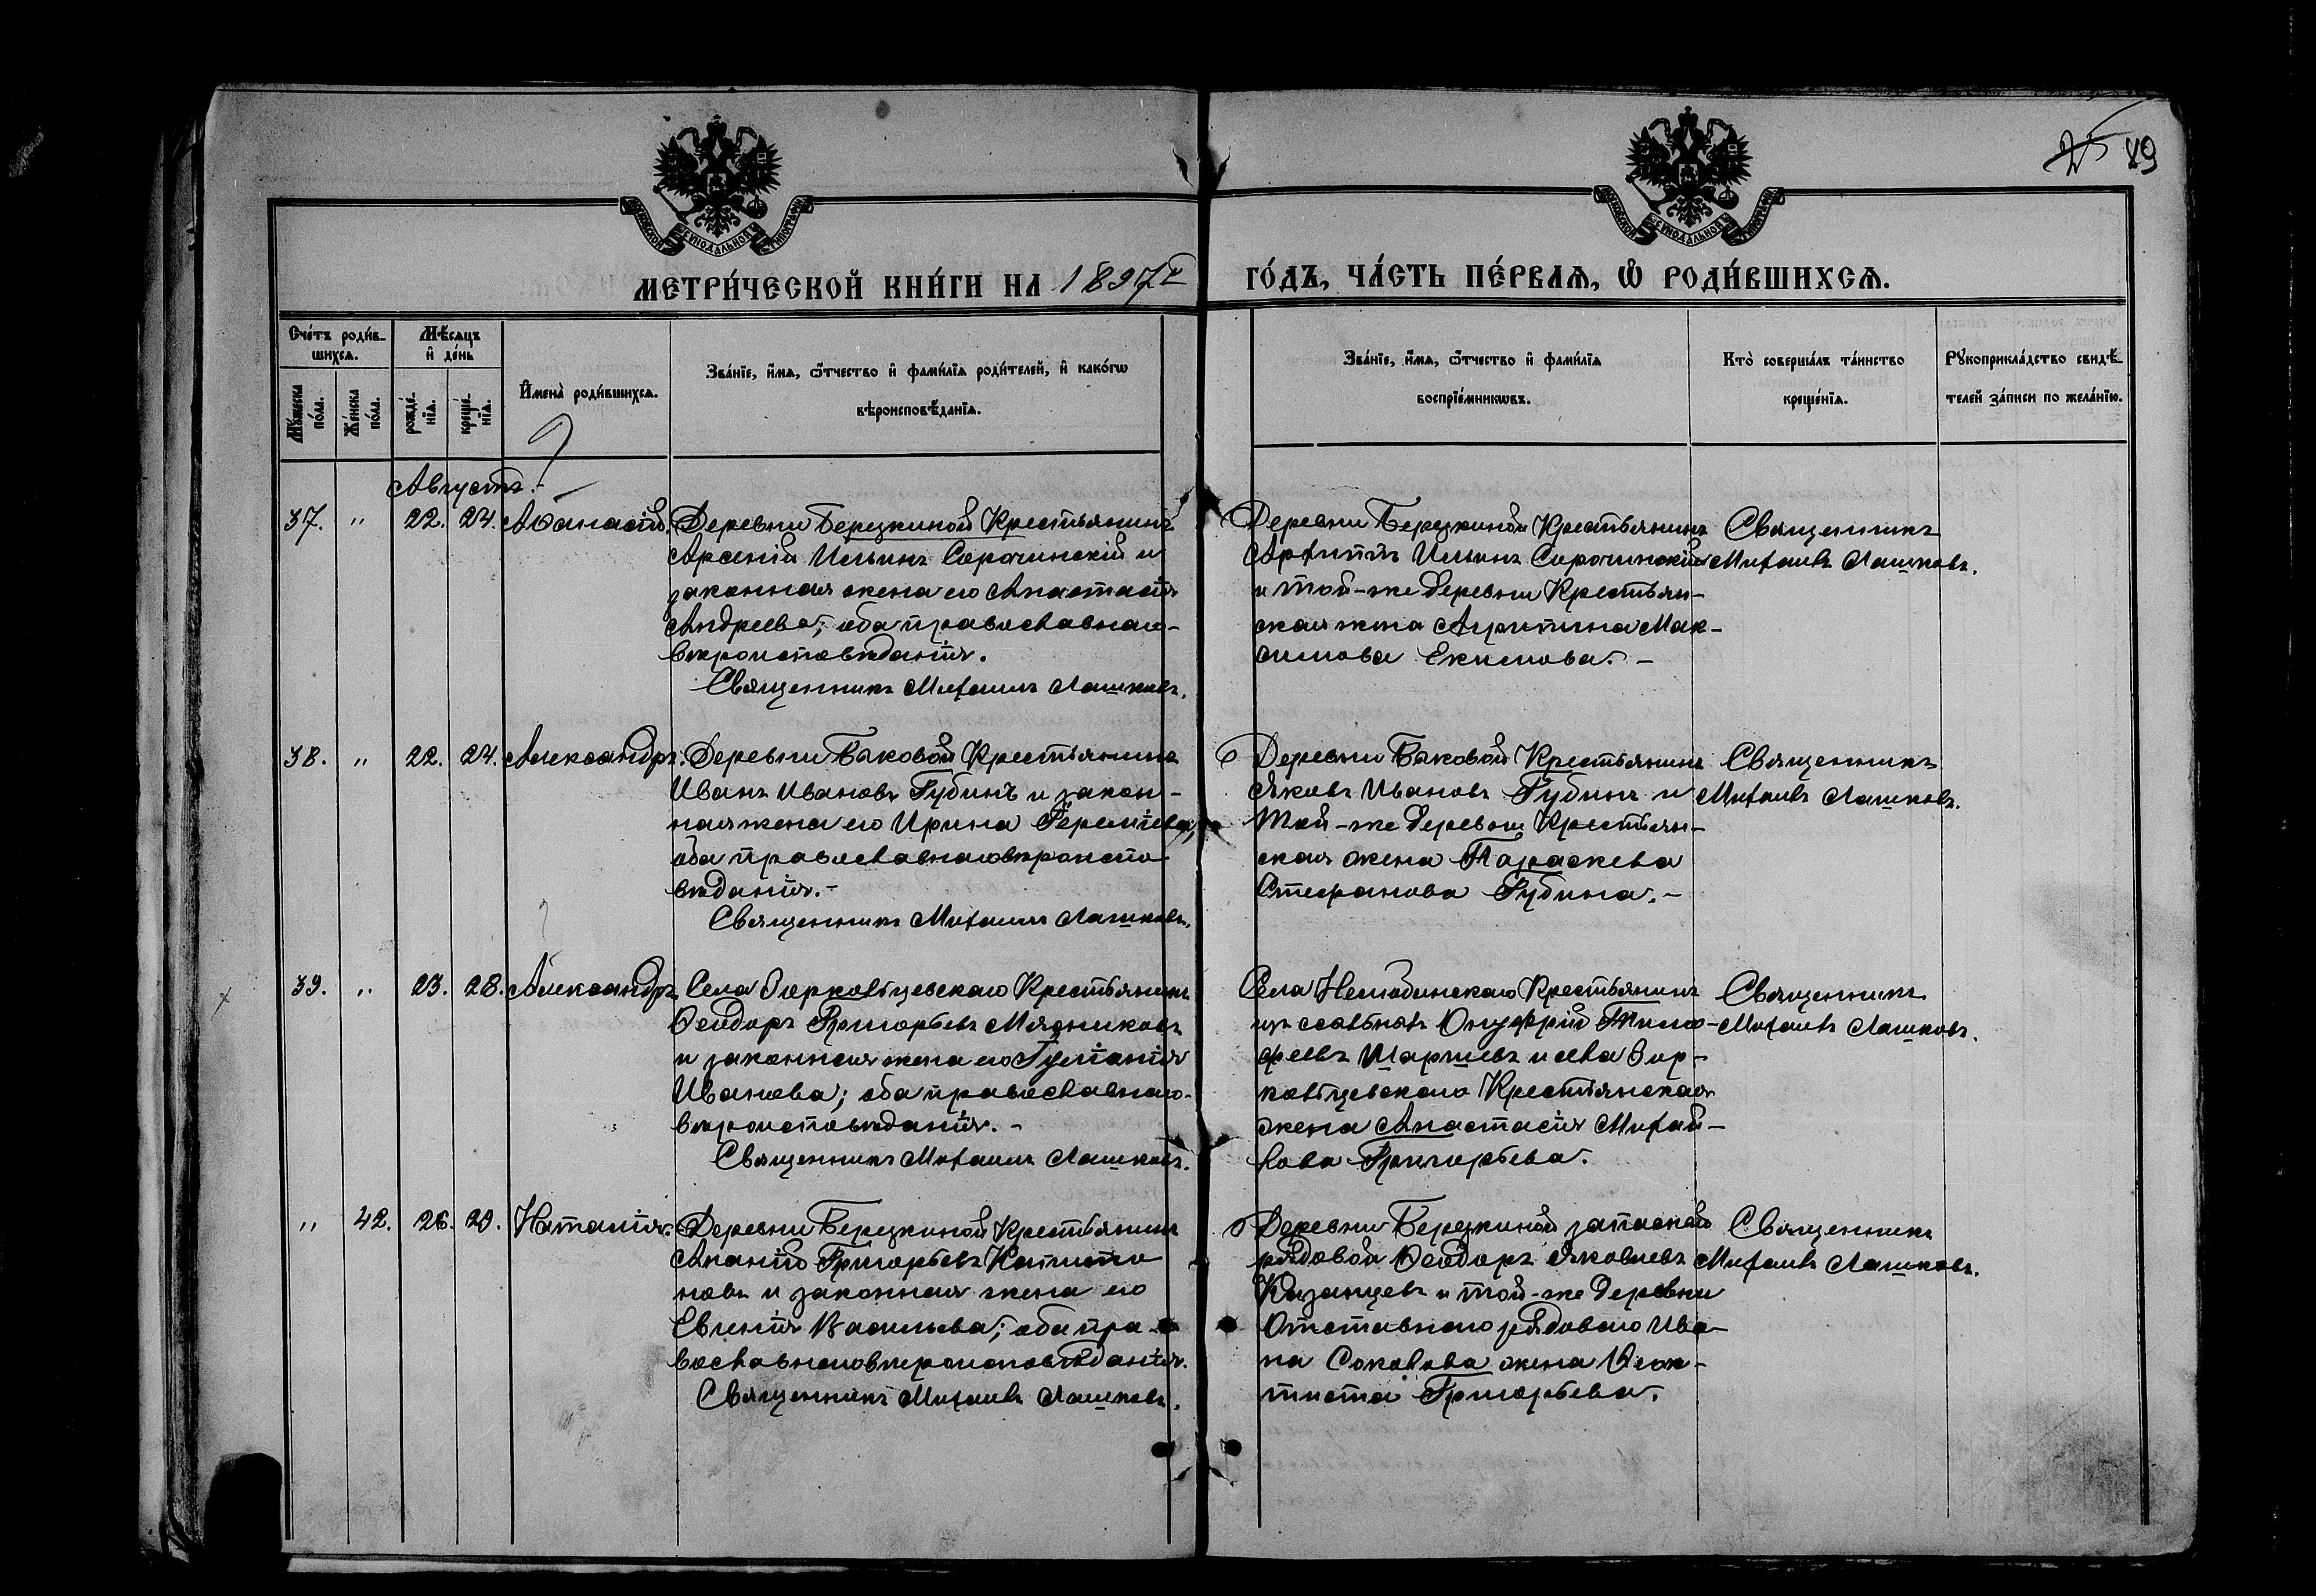 25 89
МОСКОВСКОЙ СѴНОДАЛЬНОЙ ТИПОГРАФІИ
МОСКОВСКОЙ СѴНОДАЛЬНОЙ ТИПОГРАФІИ
МЕТРИ́ЧЕСКОЙ КНИ́ГИ НА 1897й ГО́ДЪ, ЧА́СТЬ ПЕ́РВАѦ, Ѡ҆ РОДИ́ВШИХСѦ.
Сче́тъ роди́в-
шихсѧ.
Мѣ́сѧцъ
и҆ де́нь
Мꙋ́жеска по́ла.
Же́нска по́ла.
рожде́-нїѧ.
креще́-нїѧ.
И҆мена̀ роди́вшихсѧ.
Зва́нїе, и҆́мѧ, ѻ҆́тчество и҆ фами́лїѧ роди́телей, и҆ како́гѡ
вѣроисповѣ́данїѧ.
Зва́нїе, и҆́мѧ, ѻ҆́тчество и҆ фами́лїѧ
воспрїе́мникѡвъ.
Кто̀ соверша́лъ та́инство
креще́нїѧ.
Рꙋкоприкла́дство свидѣ́-
телей за́писи по жела́нїю.
Августъ.
37. " 22. 24. Аѳанасій.
Деревни Березкиной Крестьянинъ
Арсеній Ильинъ Сорочинскій и
законная жена его Анастасія
Андреева; оба православнаго-
вѣроисповѣданія.
Священникъ Михаилъ Лашковъ.
Деревни Березкиной Крестьянинъ
Архиппъ Ильинъ Сорочинскій
и той-же деревни Крестьян-
ская жена Агрипина Мак-
симова Екимова.-
Священникъ
Михаилъ Лашковъ.
38. " 22. 24. Александръ.
Деревни Быковой Крестьянинъ
Иванъ Ивановъ Губинъ и закон-
ная жена его Ирина
оба православнаго вѣроиспо-
вѣданія.-
Священникъ Михаилъ Лашковъ.
Деревни Быковой Крестьянинъ
Яковъ Ивановъ Губинъ и
той-же деревни Крестьян-
ская жена Параскева
Стефанова Губина.-
Священникъ
Михаилъ Лашковъ.
39. " 23. 28. Александръ
Села Крестьянинъ
Ѳеодоръ Григорьевъ Мясниковъ
и законная жена его
Иванова; оба православнаго-
вѣроисповѣданія.-
Священникъ Михаилъ Лашковъ.
Села Крестьянинъ
изъ Онуфрій Тимо-
феевъ и села
Крестьянская
жена Анастасія Михай-
лова Григорьева.
Священникъ
Михаилъ Лашковъ.
" 42. 26. 29. Наталія.
Деревни Березкиной Крестьянинъ
Ананій Григорьевъ Капито-
новъ и законная жена его
Евгенія Васильева; оба пра-
вославнаго вѣроисповѣданія.
Священникъ Михаилъ Лашковъ.
Деревни Березкиной запасной
рядовой Ѳеодоръ Яковлевъ
Казанцевъ и той-же деревни
Отставнаго рядоваго Ива-
на Соколова жена Ѳеок-
тиста Григорьева.
Священникъ
Михаилъ Лашковъ.